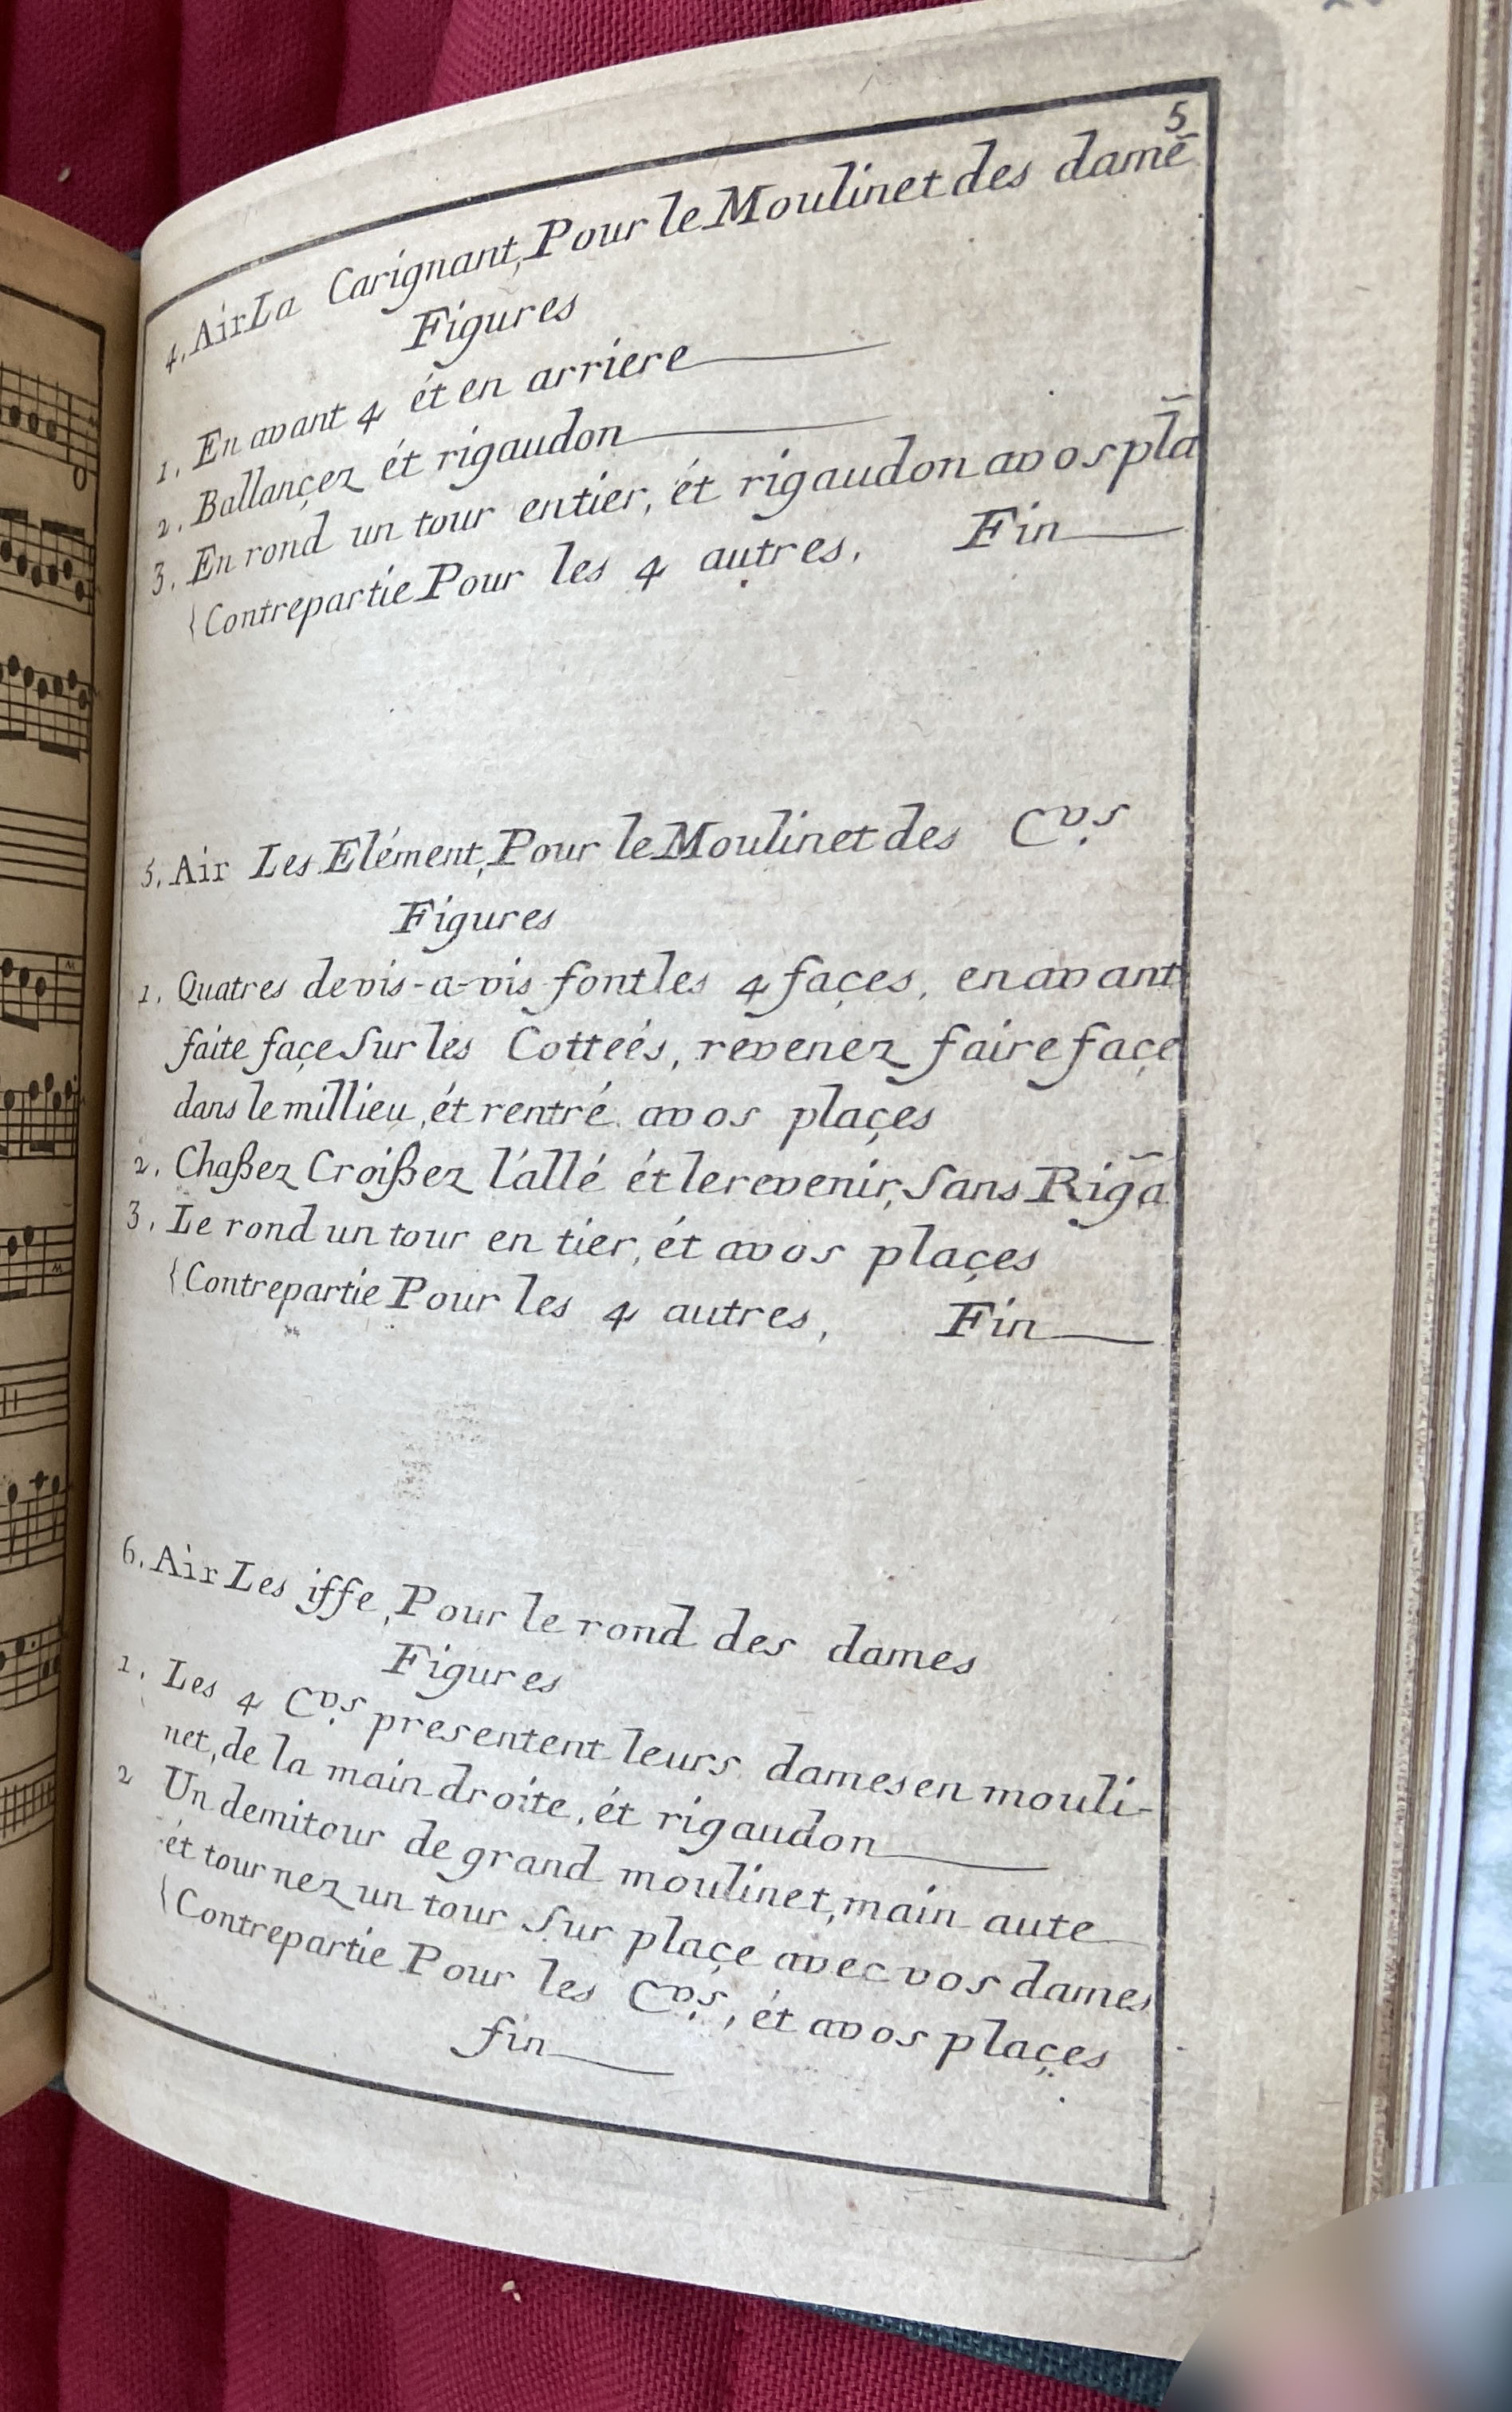 5
4. Air La Carignant, Pour le Moulinet des damē
Figures
1. En avant 4 ét en arriere
2. Ballançez ét rigaudon
3. En rond un tour entier, ét rigaudon avos pla̅
{Contrepartie Pour les 4 autres, Fin
5. Air Les Elément, Pour le Moulinet des Cvs.
Figures
1. Quatres devis-a-vis font les 4 façes, en avant
faite façe Sur les Cotteés, revenez faire façe
dans le millieu, ét rentré avos plaçes
2. Chaßez Croißez l'allé ét le revenir, Sans Riga̅
3. Le rond un tour en tier, ét avos plaçes
{Contrepartie Pour les 4 autres, Fin
6. Air Les iffe, Pour le rond des dames
Figures
1. Les 4 Cvs. presentent leurs dames en mouli-
net, de la main droite, ét rigaudon
2 Un demitour de grand moulinet, main aute
ét tournez un tour Sur plaçe avec vos dames
{Contrepartie Pour les Cvs., ét avos plaçes
fin